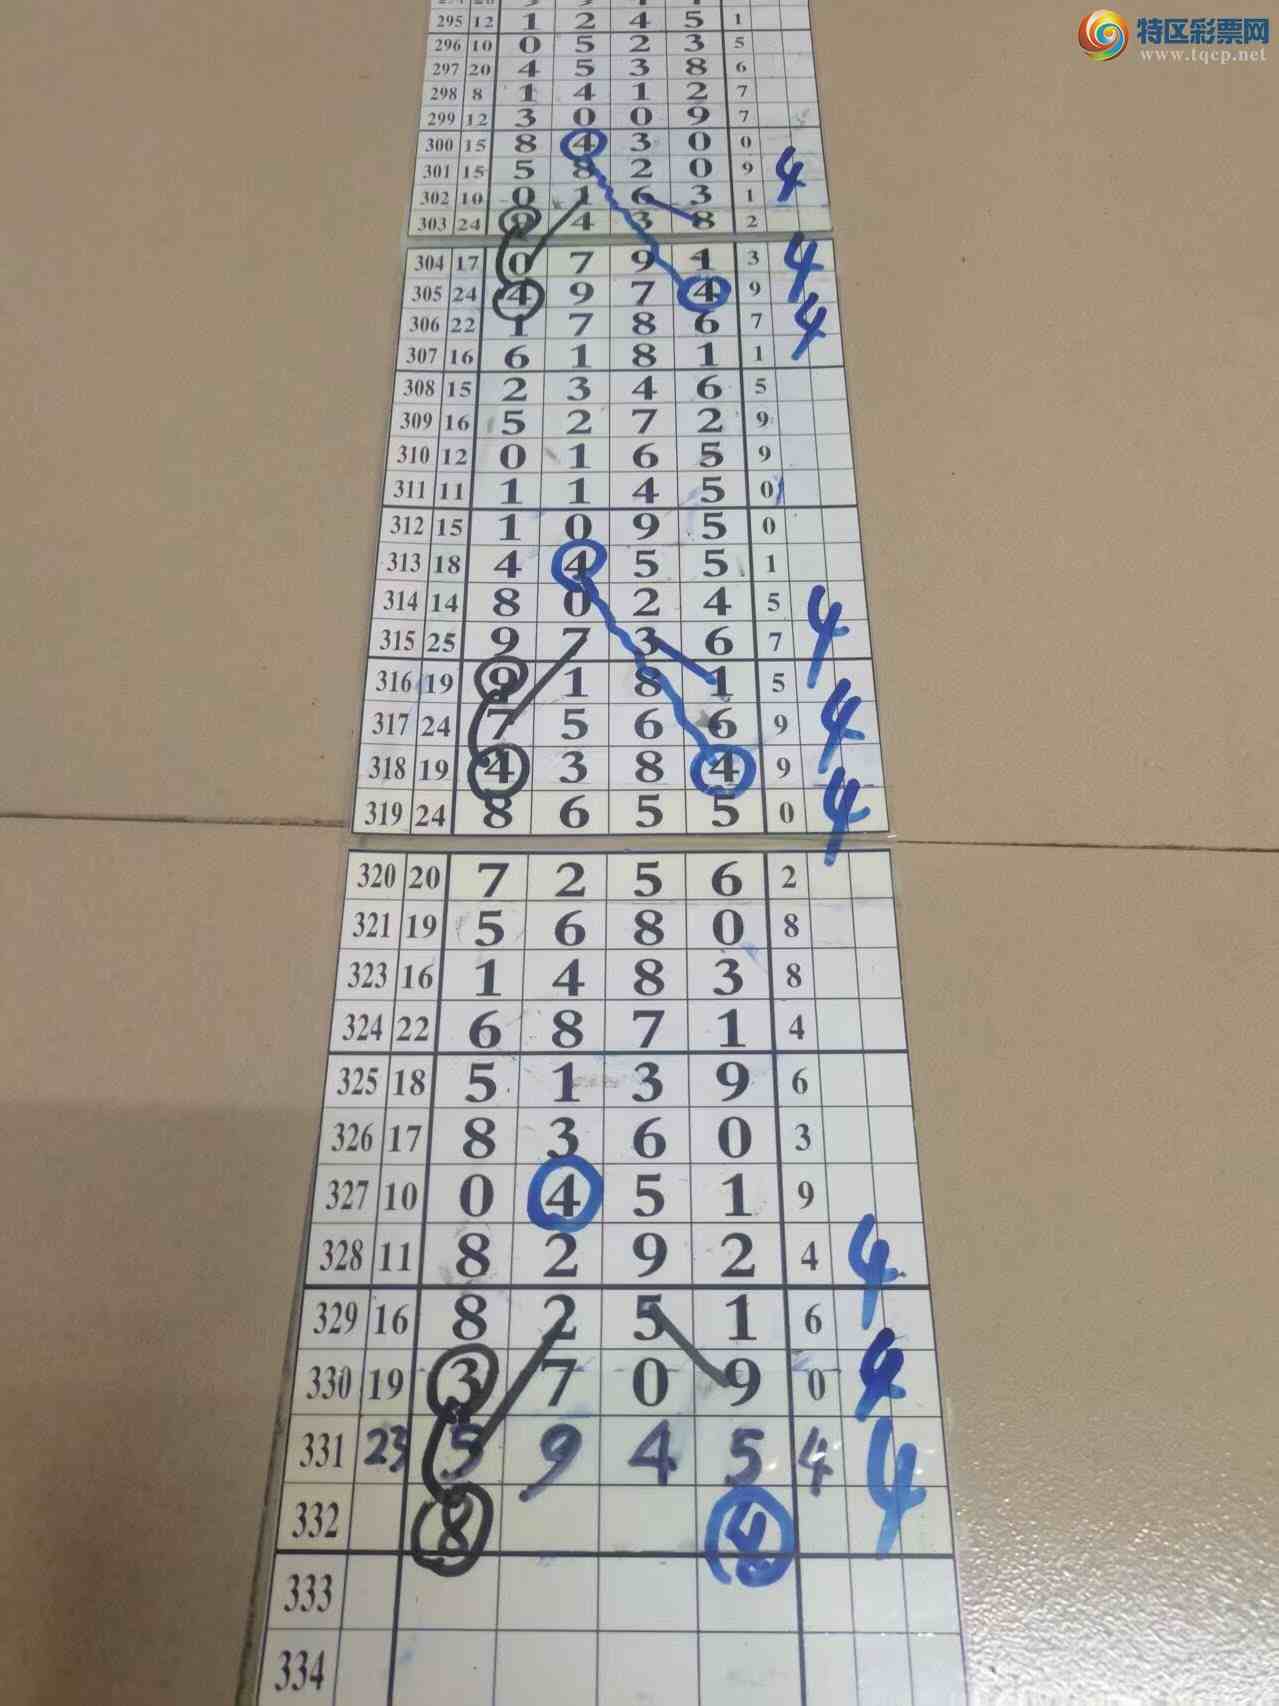 特区彩票网
www.tqcp.net
295 12 1 2 4 5 1
296 10 0 5 2 3 5
297 20 4 5 3 8 6
298 8 1 4 1 2 7
299 12 3 0 0 9 7
300 15 8 4 3 0 0
301 15 5 8 2 0 9 4
302 10 0 1 6 3 1
303 24 9 4 3 8 2
304 17 0 7 9 1 3 4
305 24 4 9 7 4 9
306 22 1 7 8 6 7 4
307 16 6 1 8 1 1
308 15 2 3 4 6 5
309 16 5 2 7 2 9
310 12 0 1 6 5 9
311 11 1 1 4 5 0
312 15 1 0 9 5 0
313 18 4 4 5 5 1
314 14 8 0 2 4 5 4
315 25 9 7 3 6 7
316 19 9 1 8 1 5
317 24 7 5 6 6 9 4
318 19 4 3 8 4 9
319 24 8 6 5 5 0 4
320 20 7 2 5 6 2
321 19 5 6 8 0 8
323 16 1 4 8 3 8
324 22 6 8 7 1 4
325 18 5 1 3 9 6
326 17 8 3 6 0 3
327 10 0 4 5 1 9
328 11 8 2 9 2 4 4
329 16 8 2 5 1 6
330 19 3 7 0 9 0 4
331 23 5 9 4 5 4 4
332 8 4
333
334